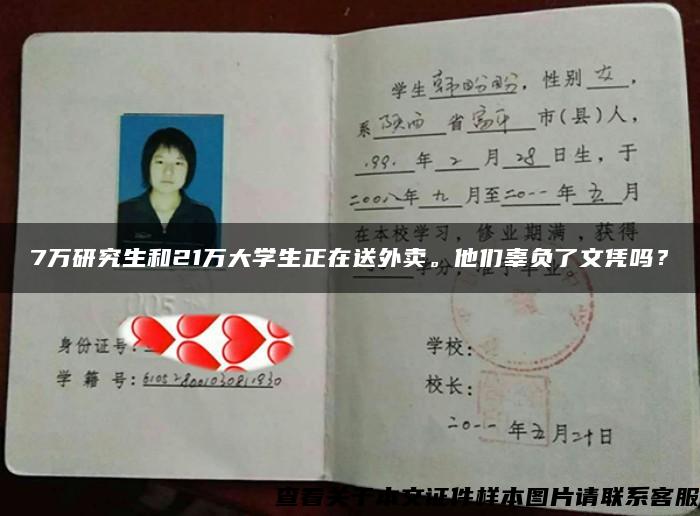 学生韩盼盼，性别女，
系陕西省富平市(县)人，
199 年2月28日生，于
二00八年九月至二0一一年五月
在本校学习，修业期满，获得
学分，准予毕业。
7万研究生和21万大学生正在送外卖。他们辜负了文凭吗？
身份证号：
学籍号：
学校：
校长：
二0一一年五月二十日
查看关于本文证件样本图片请联系客服